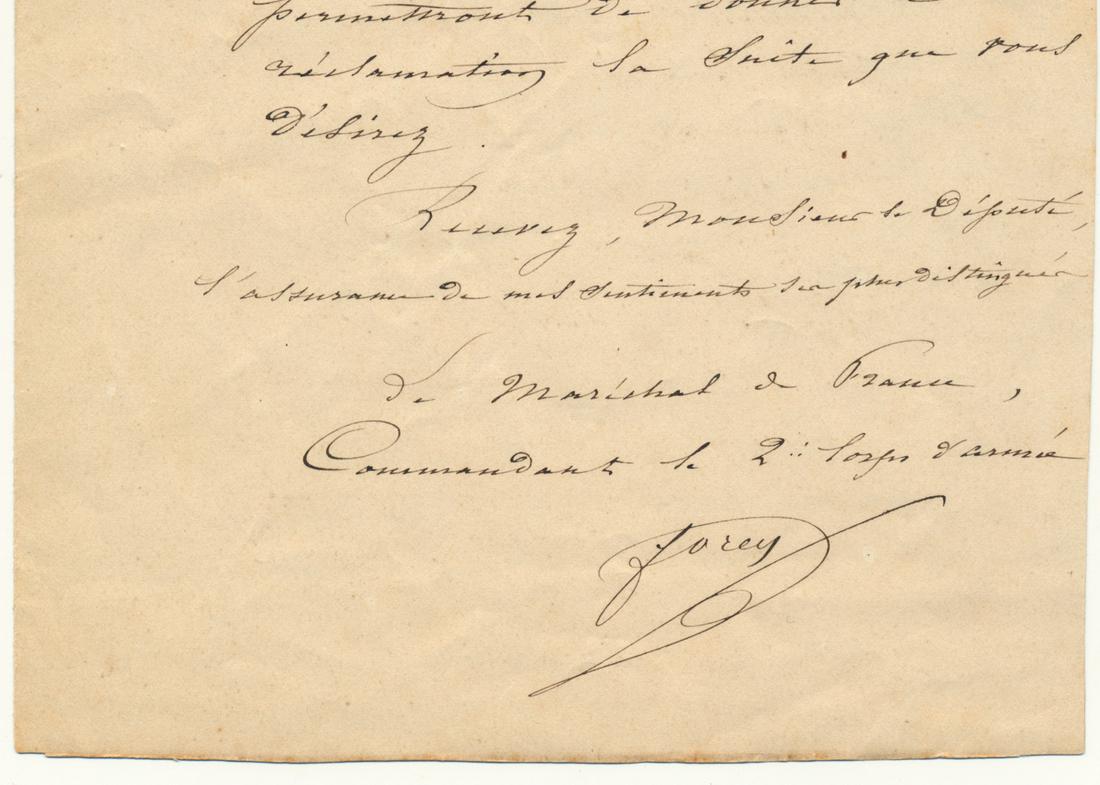 permettront de donner
réclamation la suite que vous
désirez.
Recevez, Monsieur le Député,
l'assurance de mes sentiments les plus distingués
Le Maréchal de France,
Commandant le 2e Corps d'armée
Forey